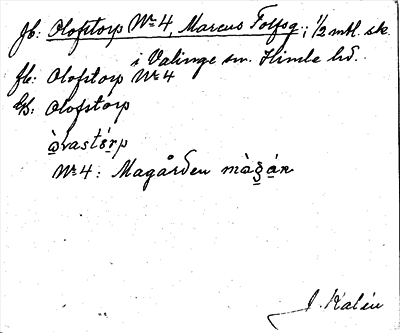 Jb: Olofstorp No 4, Marcus Tolfsg; 1/2 mtl. sk.
i Valinge sn. Himle hd.
fb: Olofstorp No 4
Gs: Olofstorp
No 4: Magården
J. Kalén